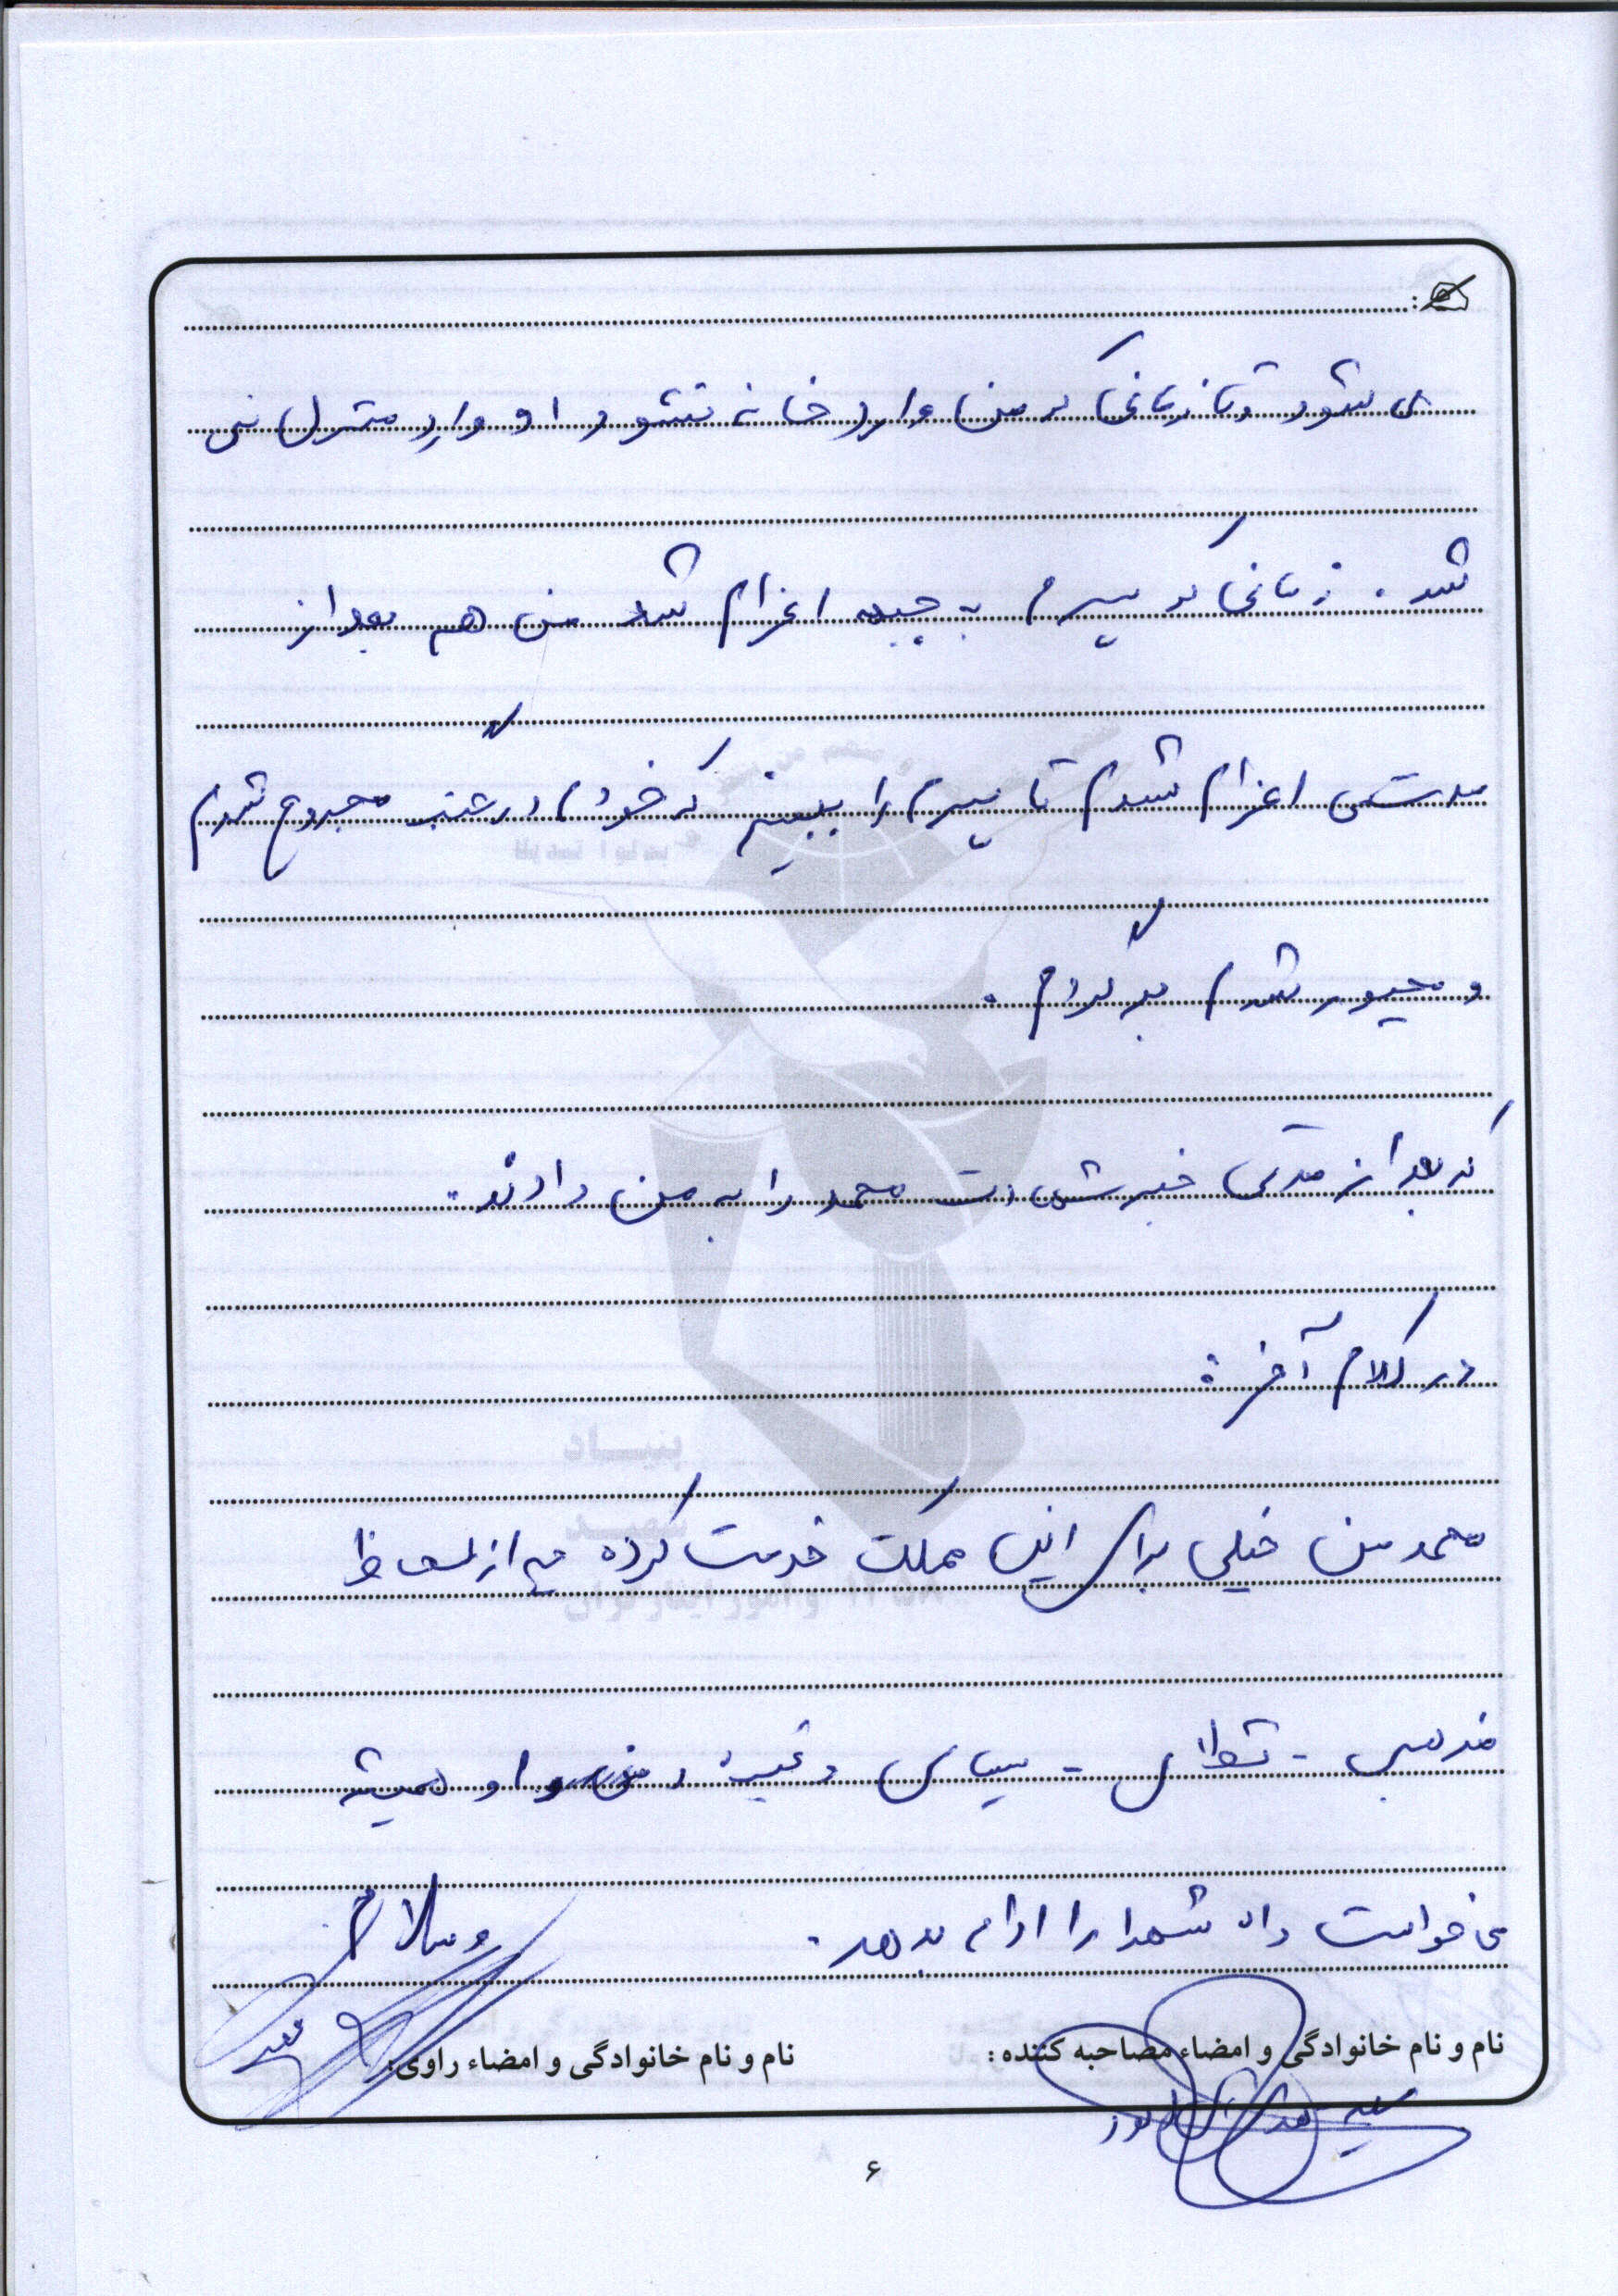 می شود و تا زمانی که من وارد خانه نشود او وارد منزل نمی
شد. زمانی که پسرم به جبهه اعزام شد من هم بعد از
مدتی اعزام شدم تا پسرم را ببینم که خودم در مجروح شدم
و مجبور شدم برگردم.
که بعد از مدتی خبر شهادت محمد را به من دادند.
در کلام آخر:
محمد من خیلی برای این مملکت خدمت کرده چه از لحاظ
مذهبی - - سیاسی و غیره او همیشه
می خواست راه شهدا را ادامه بدهد.
وسلام
نام و نام خانوادگی و امضاء مصاحبه کننده:
نام و نام خانوادگی و امضاء راوی:
۶